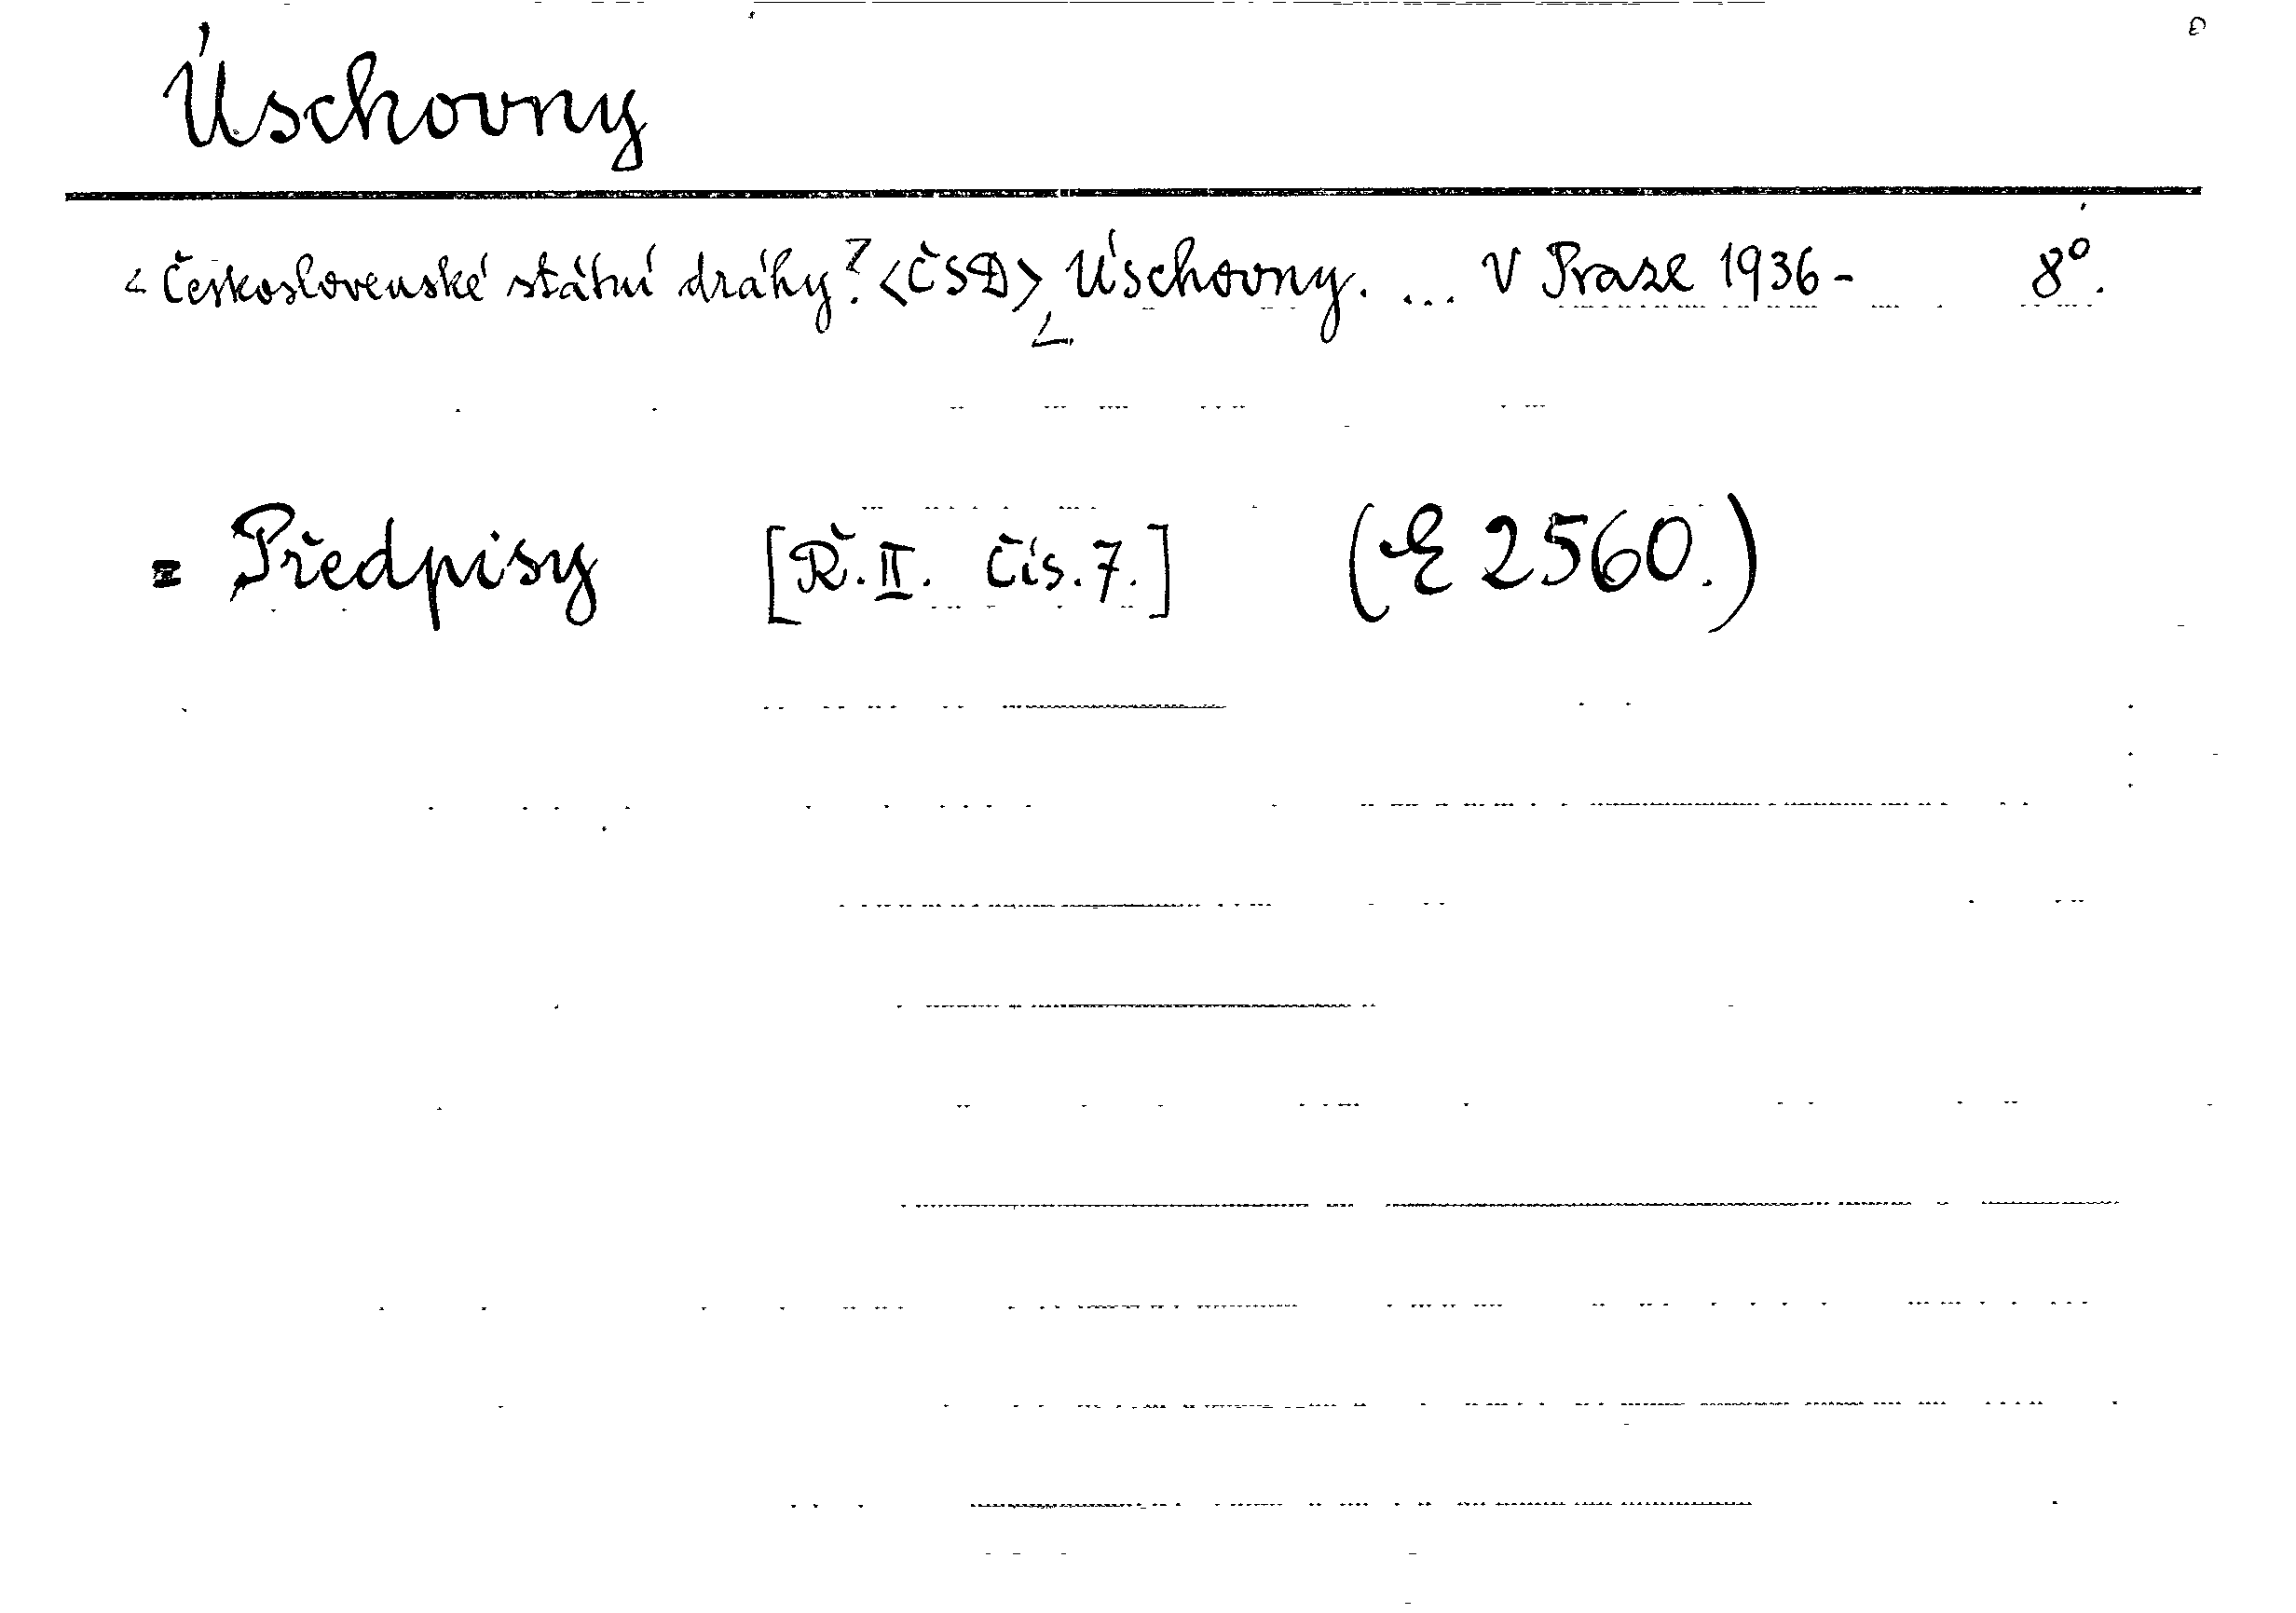 Úschovny
<Československé státní dráhy? <ČSD> Úschovny. ... V Praze 1936- 8°.
= Předpisy [Ř. II. Čís. 7.] (E 2560.)